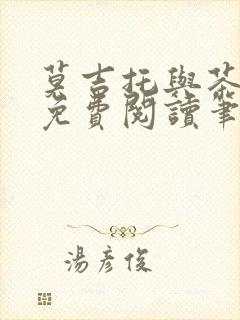 莫吉托與茶
免費閱讀筆
湯彥俊